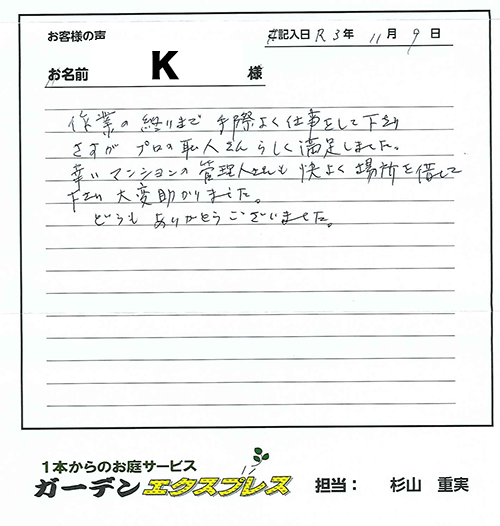 お客様の声
ご記入日 R3年 11月 9日
お名前 K 様
作業の終りまで手際よく仕事をして下さり
さすがプロの職人さんらしく満足しました。
幸いマンションの管理人さんも快よく場所を借して
下さり大変助かりました。
どうもありがとうございました。
1本からのお庭サービス
ガーデンエクスプレス 担当: 杉山 重実